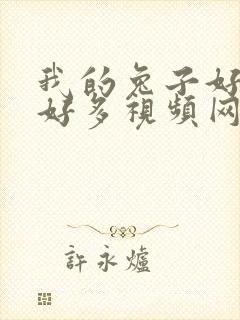 我的兔子好
好多視頻网
許永爐